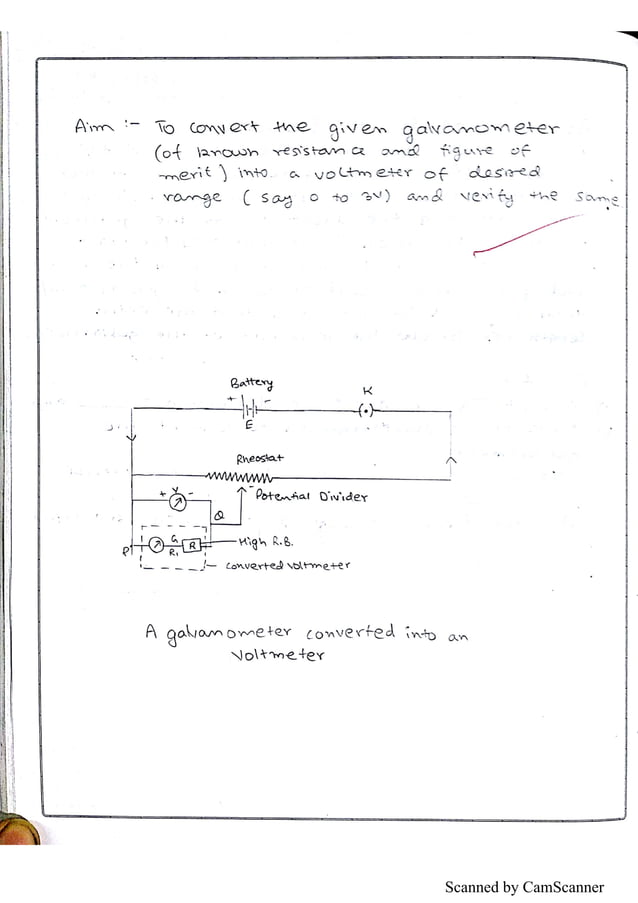 Aim :- To convert the given galvanometer
(of known resistance and figure of
merit) into a voltmeter of desired
range (say 0 to 3V) and verify the same
Battery
+ -
E
K
Rheostat
+ V -
Potential Divider
Q
P
G
R1
R
High R.B.
converted voltmeter
A galvanometer converted into an
voltmeter
Scanned by CamScanner